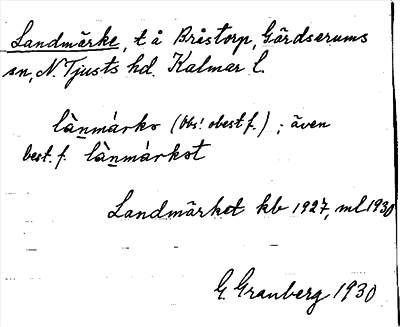 Landmärke, t å Bråstorp, Gärdserums
sn, N. Tjusts hd. Kalmar l.
lànmàrko (obs! obest f.) ; även
best. f. lànmàrkot
Landmärket kb 1927, ml 1930
G. Granberg 1930